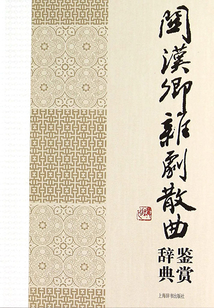 關漢卿雜劇散曲
鑒賞
辭典
上海辞书出版社